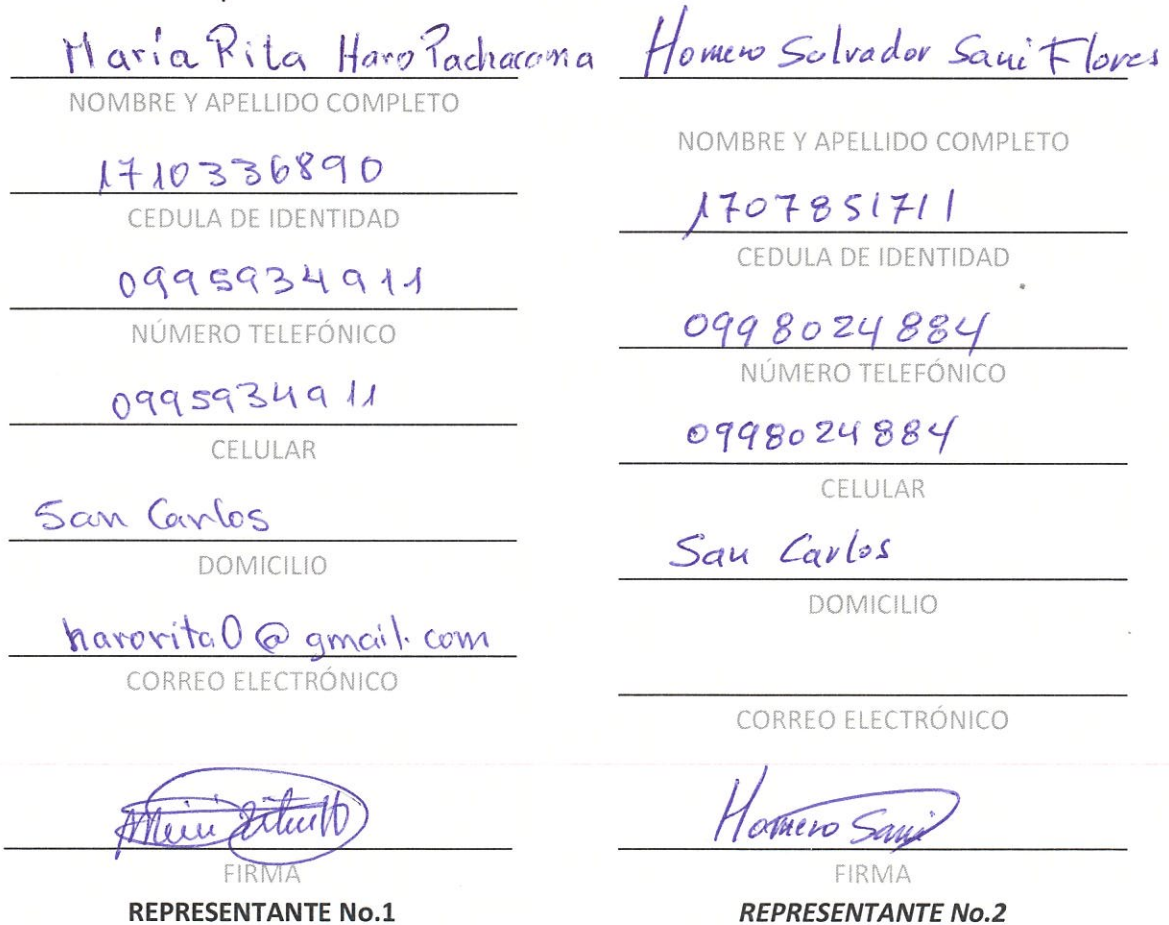 María Rita Haro Pachacama
NOMBRE Y APELLIDO COMPLETO
1710336890
CEDULA DE IDENTIDAD
0995934911
NÚMERO TELEFÓNICO
0995934911
CELULAR
San Carlos
DOMICILIO
harorita0@gmail.com
CORREO ELECTRÓNICO
FIRMA
REPRESENTANTE No.1
Homero Salvador Sani Flores
NOMBRE Y APELLIDO COMPLETO
1707851711
CEDULA DE IDENTIDAD
0998024884
NÚMERO TELEFÓNICO
0998024884
CELULAR
San Carlos
DOMICILIO
CORREO ELECTRÓNICO
Homero Sani
FIRMA
REPRESENTANTE No.2